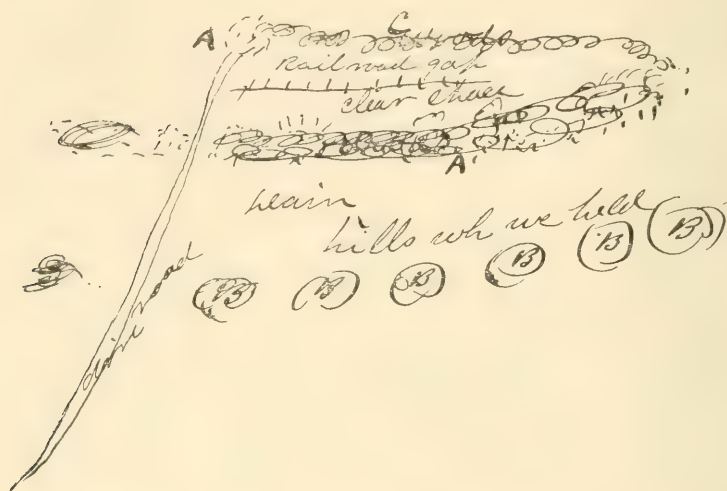 A
Railroad gap
clear
A
A
plain
hills wh we held
B B B B B B
road